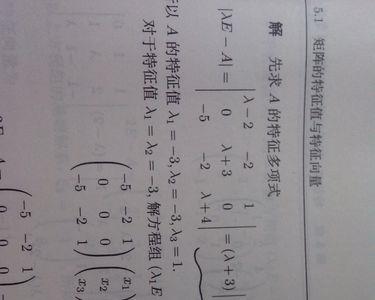 5.1 矩阵的特征值与特征向量
解 先求 A 的特征多项式
|λE − A| = | λ − 2 −2 1 |
| 0 λ + 3 0 | = (λ + 3) |
| −5 −2 λ + 4 |
以 A 的特征值 λ₁ = −3, λ₂ = −3, λ₃ = 1.
对于特征值 λ₁ = λ₂ = −3, 解方程组 (λ₁E
( −5 −2 1 ) ( x₁ )
( 0 0 0 ) ( x₂ )
( −5 −2 1 ) ( x₃ )
( −5 −2 1 )